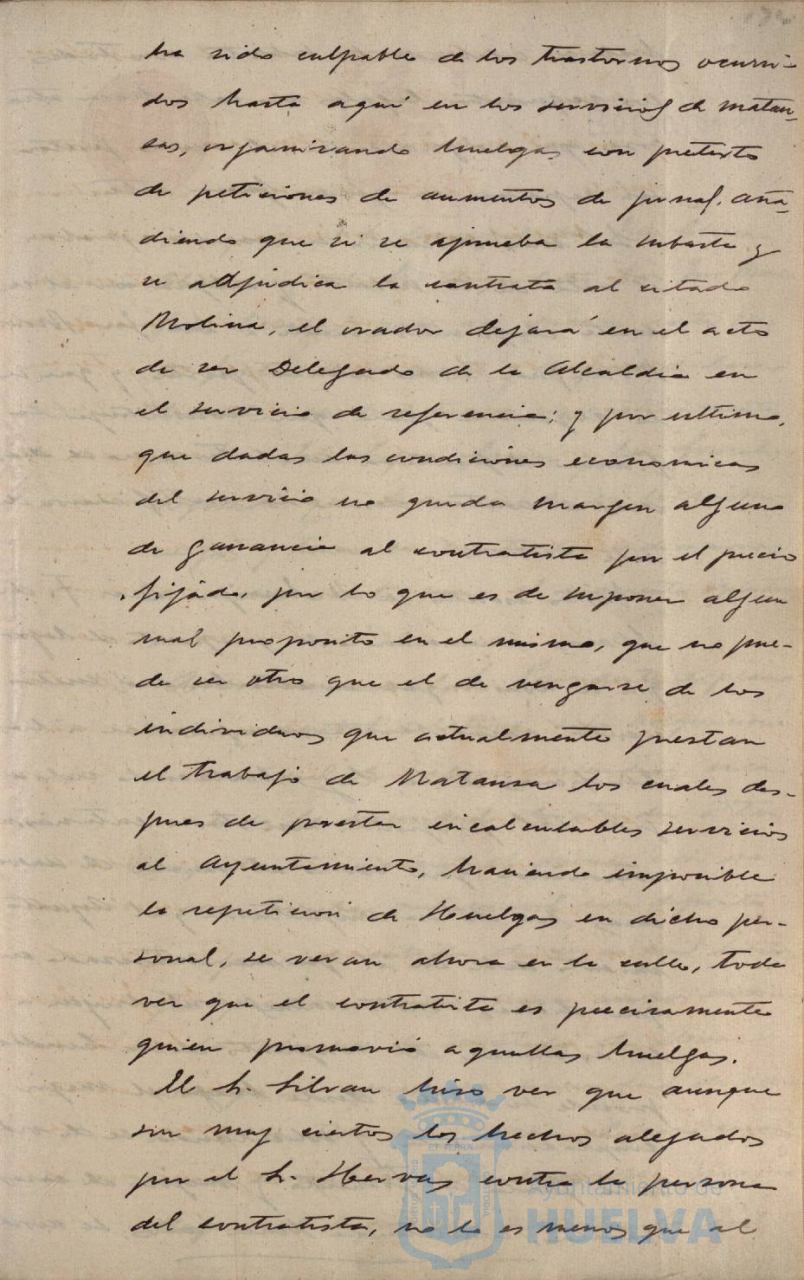 ha sido culpable de los trastornos ocurri-
dos hasta aquí en los servicios de matan-
sas, organizando huelgas con pretexto
de peticiones de aumentos de jornal, aña-
diendo que si se aprueba la subasta y
se adjudica la contrata al citado
Molina, el orador dejará en el acto
de ser Delegado de la Alcaldia en
el servicio de referencia; y por ultimo,
que dadas las condiciones economicas
del servicio no queda margen alguno
de ganancia al contratista por el precio
fijado, por lo que es de suponer algun
mal proposito en el mismo, que no pue-
de ser otro que el de vengarse de los
individuos que actualmente prestan
el trabajo de Matansa los cuales des-
pues de prestar incalculables servicios
al Ayuntamiento, haciendo imposible
la repeticion de Huelgas en dicho per-
sonal, se veran ahora en la calle, toda
vez que el contratista es precisamente
quien promovió aquellas huelgas.
El Sr. Silvan hiso ver que aunque
son muy ciertos los hechos alegados
por el Sr. Hervas contra la persona
del contratista, no lo es menos que al
Ayuntamiento de
HUELVA